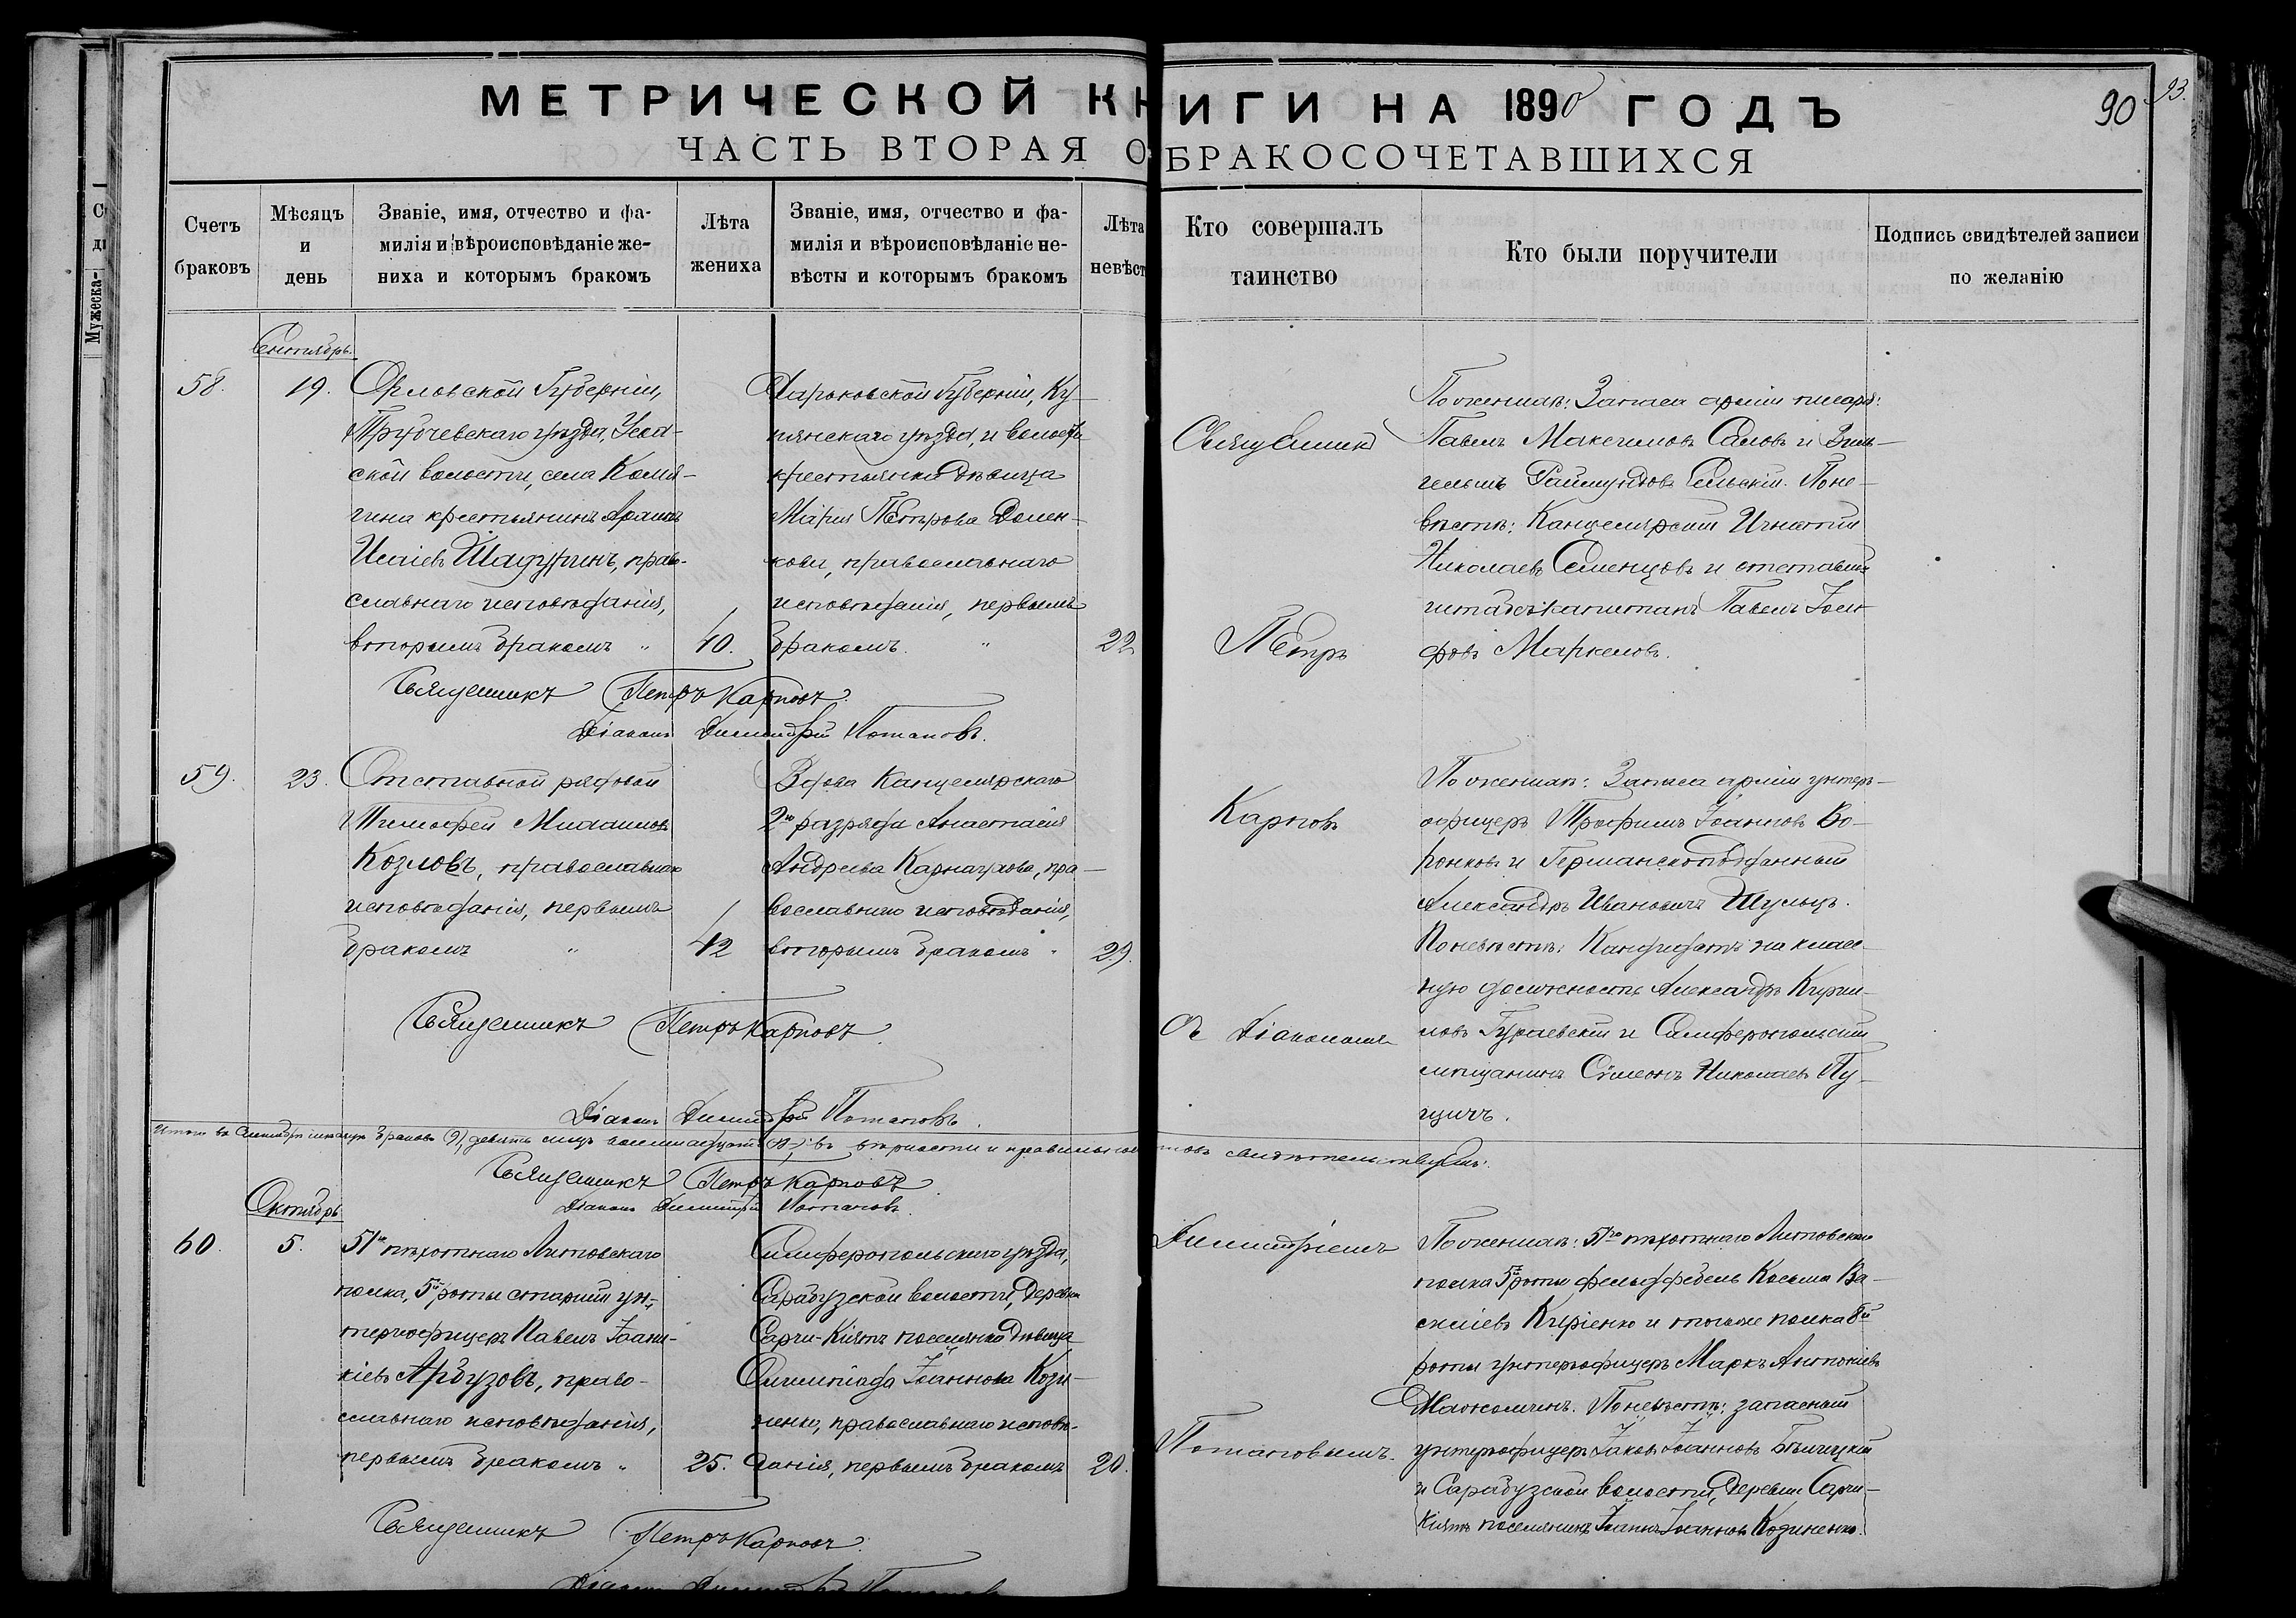 МЕТРИЧЕСКОЙ КНИГИ НА 1890 ГОДЪ
90
93.
ЧАСТЬ ВТОРАЯ О БРАКОСОЧЕТАВШИХСЯ
Счетъ
браковъ
Мѣсяцъ
и
день
Званіе, имя, отчество и фа-
милія и вѣроисповѣданіе же-
ниха и которымъ бракомъ
Лѣта
жениха
Званіе, имя, отчество и фа-
милія и вѣроисповѣданіе не-
вѣсты и которымъ бракомъ
Лѣта
невѣст
Кто совершалъ
таинство
Кто были поручители
Подпись свидѣтелей записи
по желанію
Мужеска-
Сентябрь.
58.
19.
Орловской Губерніи,
Трубчевскаго уѣзда,
ской волости, села Комя-
гина крестьянинъ
Исаіевъ Шадуринъ, право-
славнаго исповѣданія,
вторымъ бракомъ "
40.
Харьковской Губерніи, Ку-
пянскаго уѣзда, и волости
крестьянка дѣвица
Марія Петрова Домен-
кова, православнаго
исповѣданія, первымъ
бракомъ. "
22
Священникъ
Петръ
Карповъ
Съ Діакономъ
Димитріемъ
Потаповымъ.
По женихѣ: Запаса арміи писаря:
Павелъ Максимовъ Саловъ и Виль-
гельмъ Раймундовъ Сельскій. По не-
вѣстѣ: Канцелярскій Игнатій
Николаевъ Семенцовъ и отставной
штабсъ-капитанъ Павелъ Іоси-
фовъ Маркеловъ.
Священникъ Петръ Карповъ.
Діаконъ Димитрій Потаповъ.
59.
23.
Отставной рядовой
Тимофей
Козловъ, православнаго
исповѣданія, первымъ
бракомъ "
42
Вдова Канцелярскаго
2го разряда Анастасія
Андреева Карнаухова, пра-
вославнаго исповѣданія,
вторымъ бракомъ "
29.
По женихѣ: Запаса арміи унтеръ-
офицеръ Трофимъ Іоанновъ Во-
ронковъ и Германскоподданный
Александръ Ивановичъ Шульцъ.
По невѣстѣ: Кандидатъ на класс-
ную должность Александръ Кирил-
ловъ Гураевскій и Симферопольскій
мѣщанинъ Сѵмеонъ Николаевъ Пу-
цичъ.
Священникъ Петръ Карповъ.
Діаконъ Димитрій Потаповъ.
Итого въ Сентябрѣ мѣсяцѣ браковъ (9), девять лицъ восемнадцать (18); въ вѣрности и правильности актовъ свидѣтельствуемъ:
Священникъ Петръ Карповъ.
Діаконъ Димитрій Потаповъ.
Октябрь
60.
5.
51го пѣхотнаго Литовскаго
полка, 5й роты старшій ун-
теръ-офицеръ Павелъ Іоанни-
кіевъ Арбузовъ, право-
славнаго исповѣданія,
первымъ бракомъ "
25.
Симферопольскаго уѣзда,
Сарабузской волости, деревни
Сарчи-Кіятъ поселянка дѣвица
Олимпіада Іоаннова Кози-
ненко, православнаго исповѣ-
данія, первымъ бракомъ
20.
По женихѣ: 51го пѣхотнаго Литовскаго
полка 5й роты фельдфебель Косьма Ва-
силіевъ Киріенко и того же полка 8й
роты унтеръ-офицеръ Маркъ Антоніевъ
По невѣстѣ: запасный
унтеръ-офицеръ Іаковъ Іоанновъ Бѣлицкій
и Сарабузской волости, деревни Сарчи-
Кіятъ поселянинъ Іоаннъ Іоанновъ Козиненко.
Священникъ Петръ Карповъ.
Діаконъ Димитрій Потаповъ